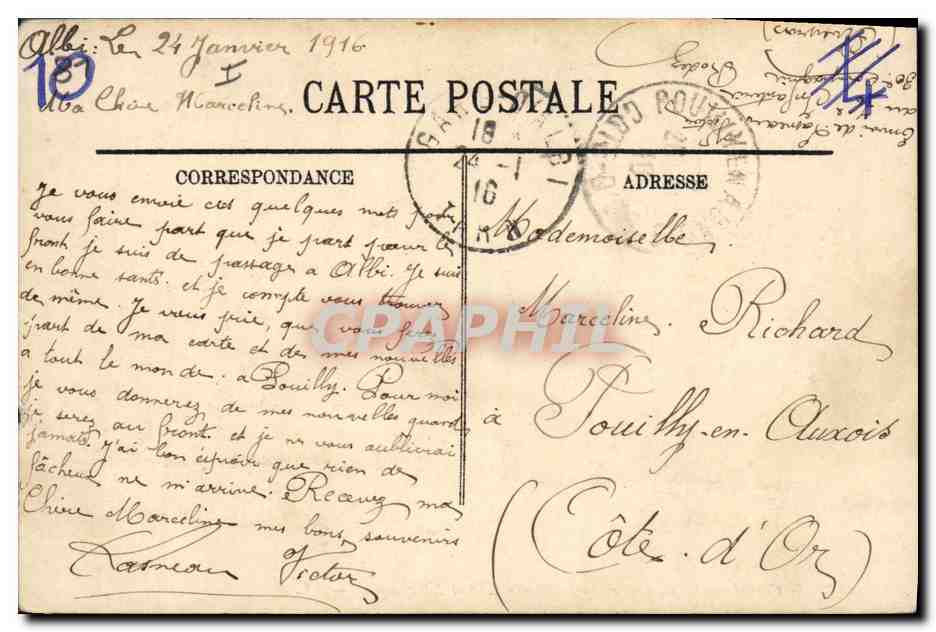 Albi : Le 24 Janvier 1916
10
8
I
Ma Chère Marceline
CARTE POSTALE
Envoi de Lasneau Victor
au d'Infanterie
30e Compagnie
Rodez
(Aveyron)
GARE D'ALBI
18
24 - 1
16
TARN
CORRESPONDANCE
ADRESSE
Je vous envoie ces quelques mots pour
vous faire part que je part pour le
front je suis de passage a Albi. Je suis
en bonne santé. et je compte vous trouver
de même. Je vous prie, que vous fete
part de ma carte et des mes nouvelles
a tout le monde. a Pouilly. Pour moi
je vous donnerez de mes nouvelles quand
je serez au front. et je ne vous aublierai
jamais. J'ai bon espoir que rien de
fâcheux ne m'arrive. Recevez ma
Chère Marceline mes bons souvenirs
Lasneau Victor
Mademoiselle
Marceline Richard
à Pouilly-en-Auxois
(Côte-d'Or)
CPAPHIL